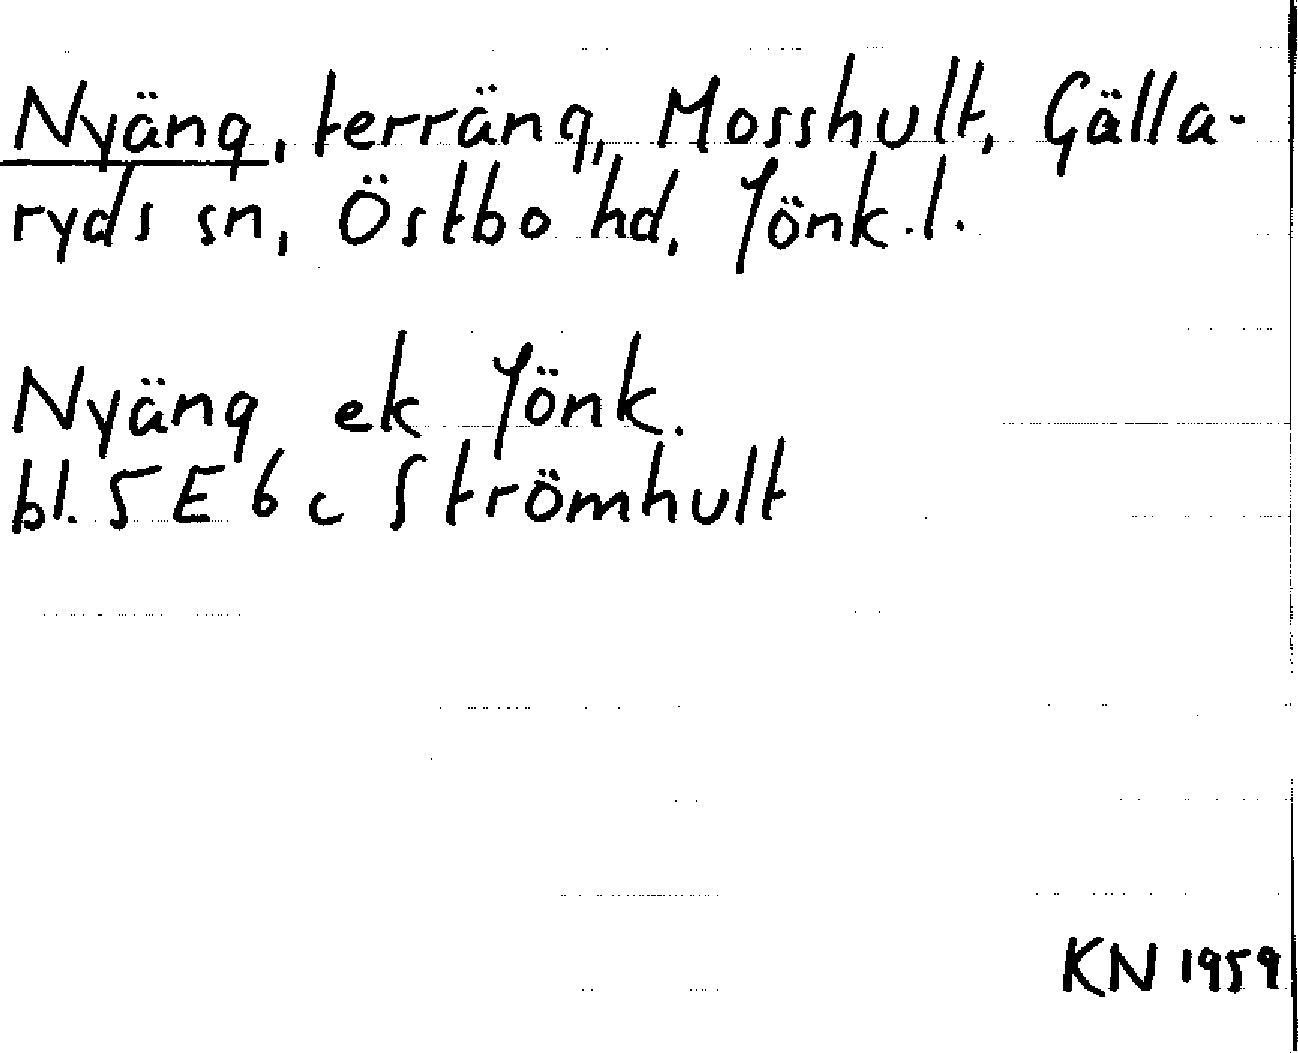 Nyäng, terräng, Mosshult, Gälla-
ryds sn, Östbo hd, Jönk.l.
Nyäng ek Jönk.
bl. 5E6c Strömhult
KN 1959